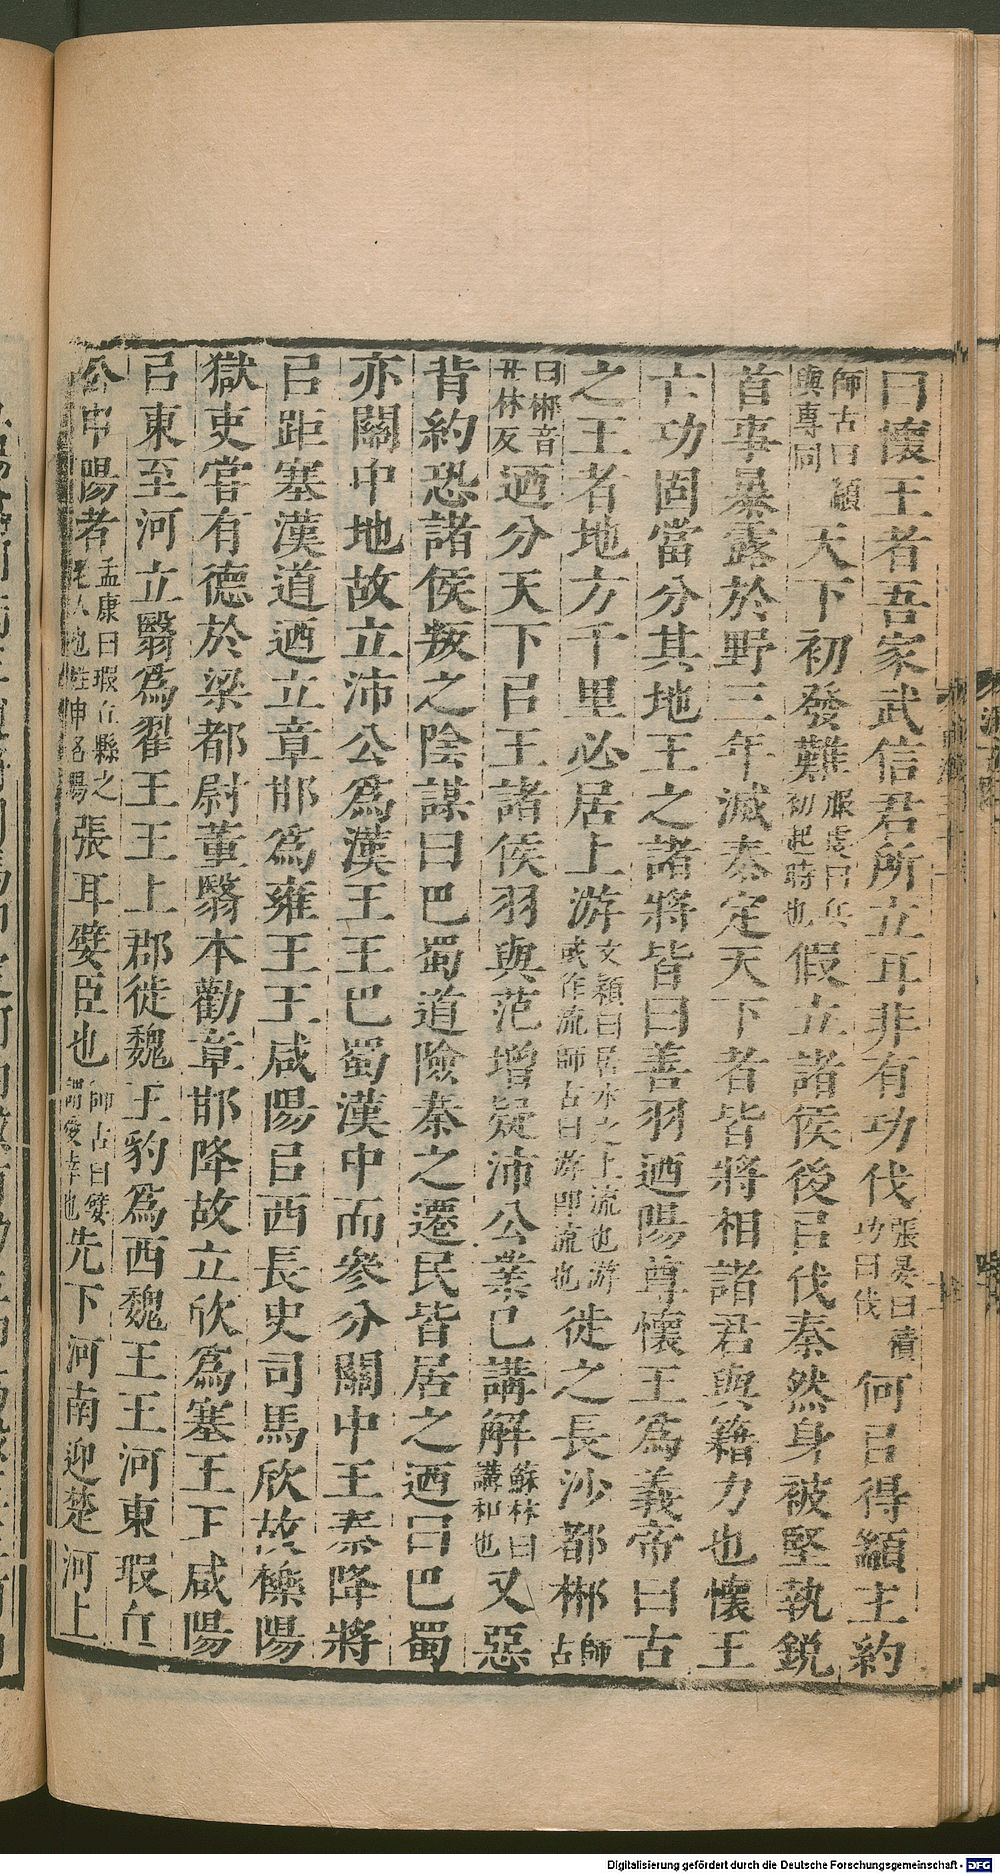 曰懷王者吾家武信君所立耳非有功伐張晏曰積功曰伐何㠯得顓主約
師古曰顓與專同天下初發難服虔曰兵初起時也假立諸侯後㠯伐秦然身被堅執銳
首事暴露於野三年滅秦定天下者皆將相諸君與籍力也懷王
亡功固當分其地王之諸將皆曰善羽迺陽尊懷王爲義帝曰古
之王者地方千里必居上游文穎曰居水之上流也游或作流師古曰游即流也徙之長沙都郴師古
曰郴音丑林反迺分天下㠯王諸侯羽與范增疑沛公業已講解蘇林曰講和也又惡
背約恐諸侯叛之陰謀曰巴蜀道險秦之遷民皆居之迺曰巴蜀
亦關中地故立沛公爲漢王王巴蜀漢中而參分關中王秦降將
㠯距塞漢道迺立章邯爲雍王王咸陽㠯西長史司馬欣故櫟陽
獄吏嘗有德於梁都尉董翳本勸章邯降故立欣爲塞王王咸陽
㠯東至河立翳爲翟王王上郡徙魏王豹爲西魏王王河東瑕丘
公申陽者孟康曰瑕丘縣之老人也姓申名陽張耳嬖臣也師古曰嬖謂愛幸也先下河南迎楚河上
Digitalisierung gefördert durch die Deutsche Forschungsgemeinschaft - DFG